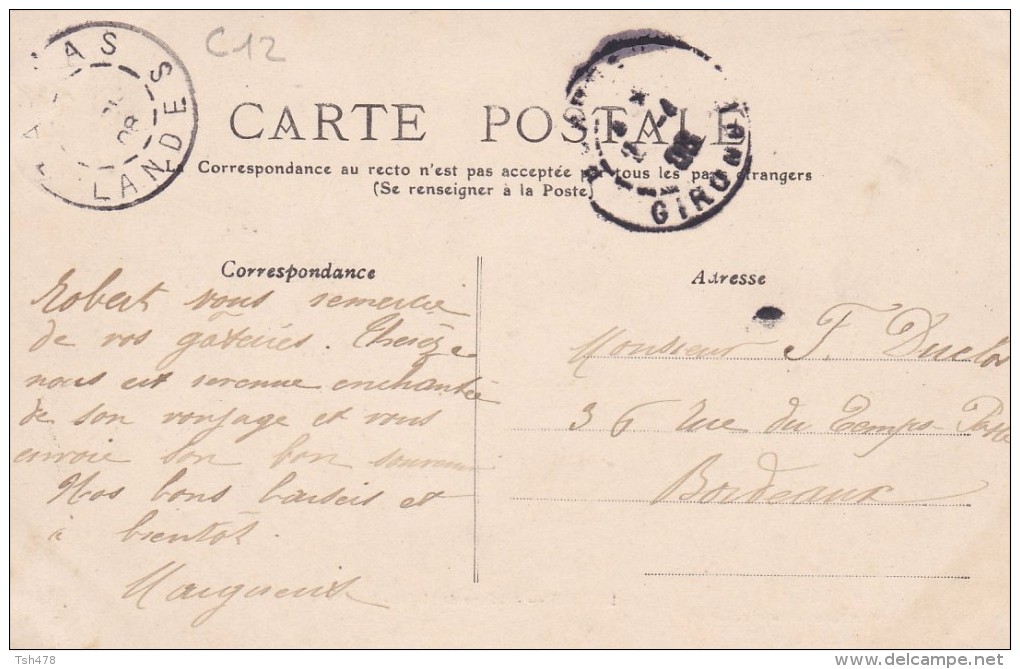 C12
AS
LANDES
08
GIRONDE
CARTE POSTALE
La Correspondance au recto n'est pas acceptée par tous les pays étrangers
(Se renseigner à la Poste)
Correspondance
Robert vous remercie
de vos gâteries. Thérèze
nous est revenue enchantée
de son voyage et vous
envoie son bon souvenir
Nos bons baisers et
à bientôt.
Marguerite
Adresse
Monsieur F. Duclos
36 rue du Temps-Passé
Bordeaux
Tsh478
www.delcampe.net